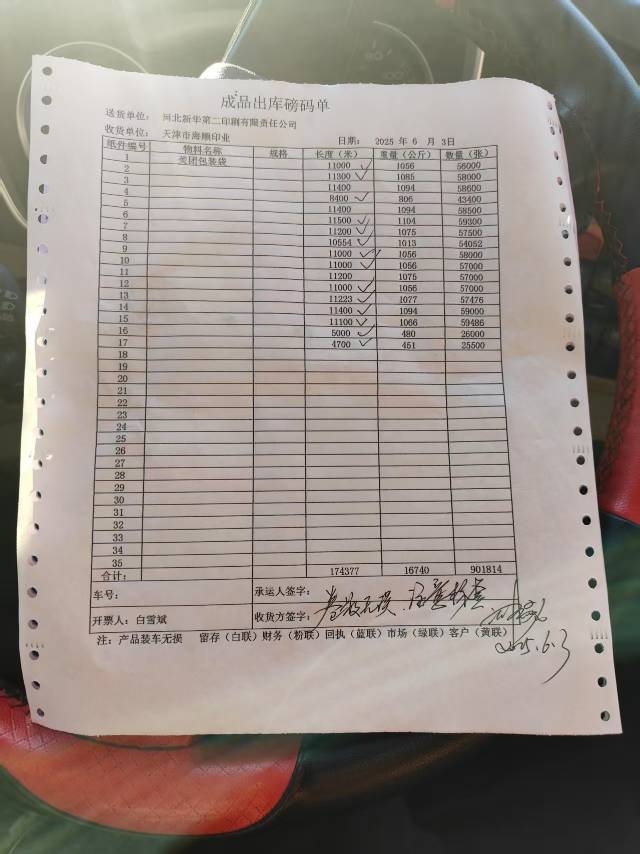 成品出库磅码单
送货单位： 河北新华第二印刷有限责任公司
收货单位： 天津市海顺印业 日期： 2025 年 6 月 3日
纸件编号 物料名称 规格 长度（米） 重量（公斤） 数量（张）
1 类团包装袋 11000 1056 56000
2 11300 1085 58000
3 11400 1094 58600
4 8400 806 43400
5 11400 1094 58500
6 11500 1104 59300
7 11200 1075 57500
8 10554 1013 54052
9 11000 1056 58000
10 11000 1056 57000
11 11200 1075 57000
12 11000 1056 57000
13 11223 1077 57476
14 11400 1094 59000
15 11100 1066 59486
16 5000 480 26000
17 4700 451 25500
18
19
20
21
22
23
24
25
26
27
28
29
30
31
32
33
34
35
合计： 174377 16740 901814
车号： 承运人签字：
开票人：白雪斌 收货方签字： 卷数无损
注：产品装车无损 留存（白联）财务（粉联）回执（蓝联）市场（绿联）客户（黄联）
2025.6.3